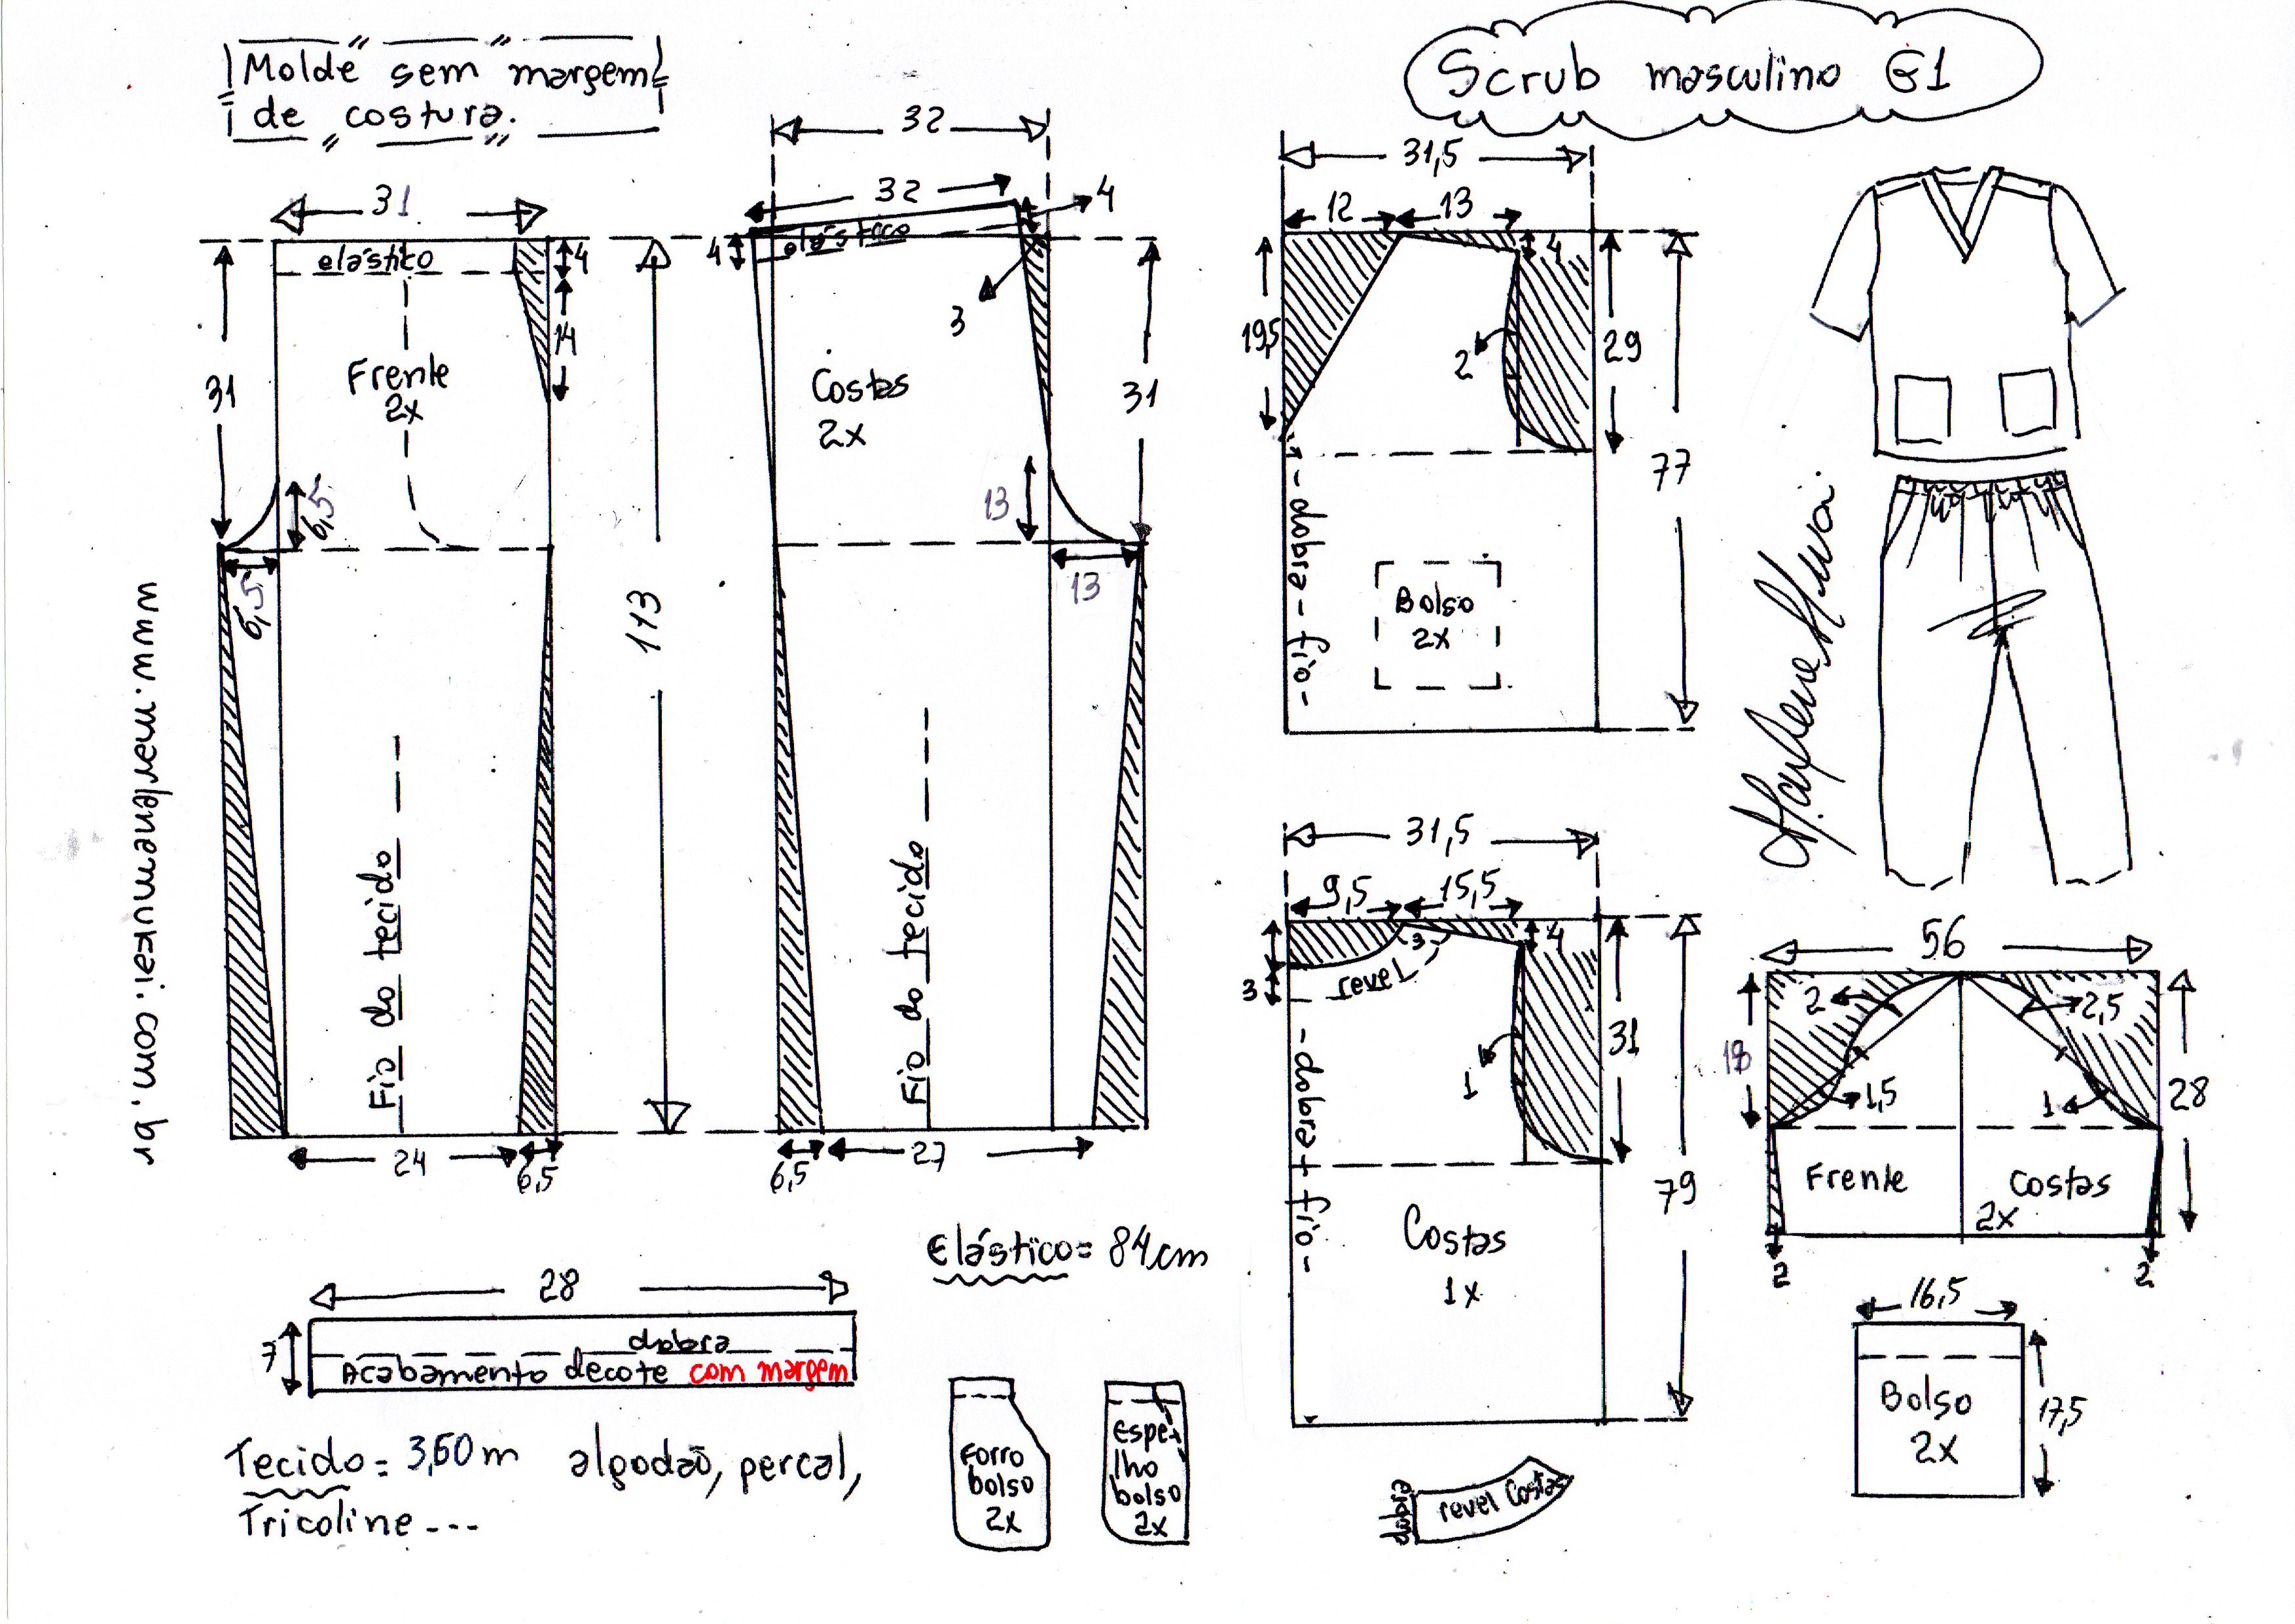 Molde sem margem
de costura.
Scrub masculino G1
31
elástico
4
14
31
Frente
2x
6,5
6,5
Fio do tecido
24
6,5
113
32
32
4
4
elástico
3
Costas
2x
31
13
13
Fio do tecido
6,5
27
31,5
12
13
4
19,5
2
29
77
-dobra-fio-
Bolso
2x
31,5
9,5
15,5
3
4
3
revel
1
31
79
-dobra+fio-
Costas
1x
56
2
2,5
18
1,5
1
28
Frente
Costas
2x
2
2
16,5
Bolso
2x
17,5
www.marlenemukai.com.br
Marlene Mukai
Elástico= 84cm
28
7
dobra
Acabamento decote com margem
Tecido= 3,60m algodão, percal,
Tricoline---
Forro
bolso
2x
Espe-
lho
bolso
2x
dobra
revel Costas